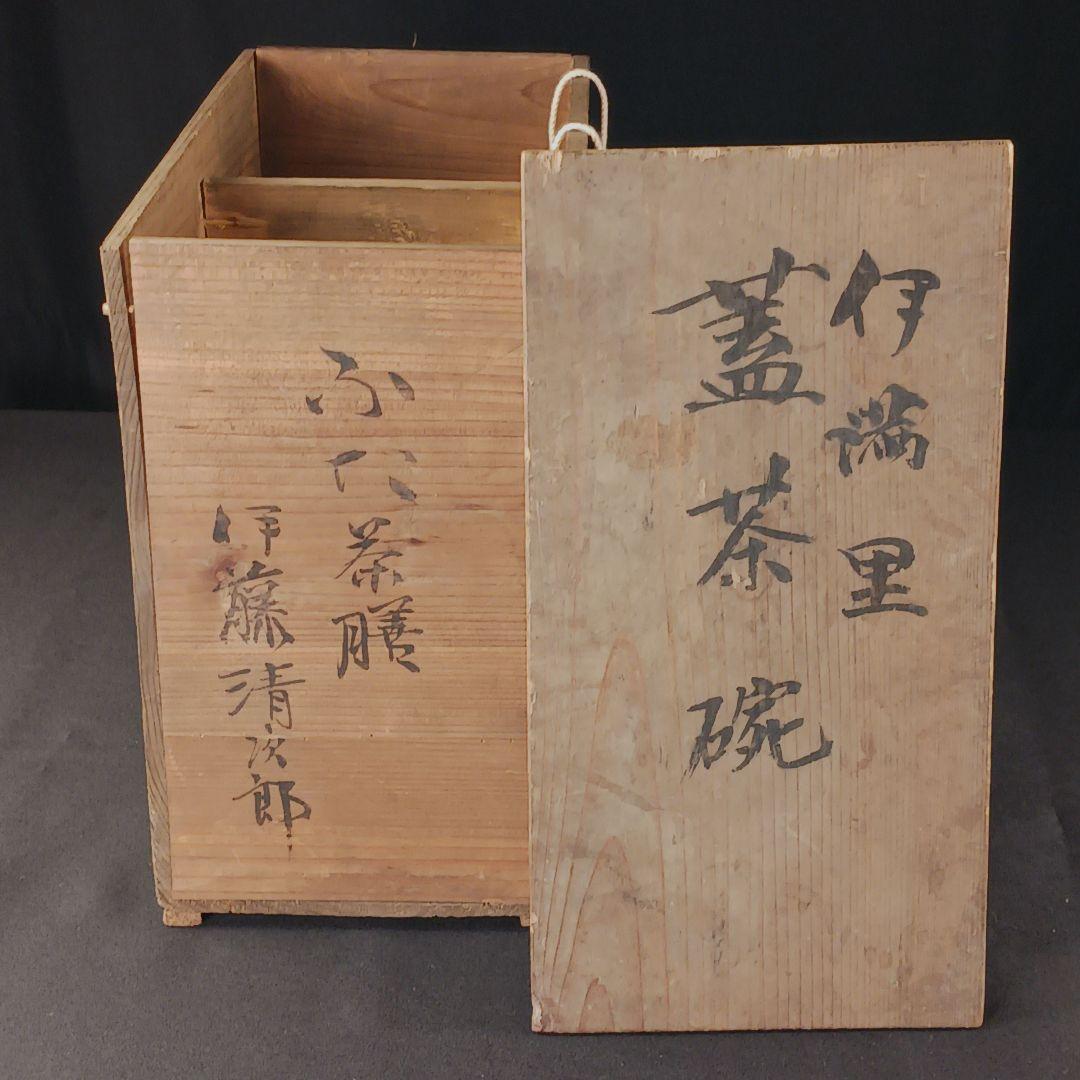 伊満里
蓋茶碗
ふた茶膳
伊藤清次郎